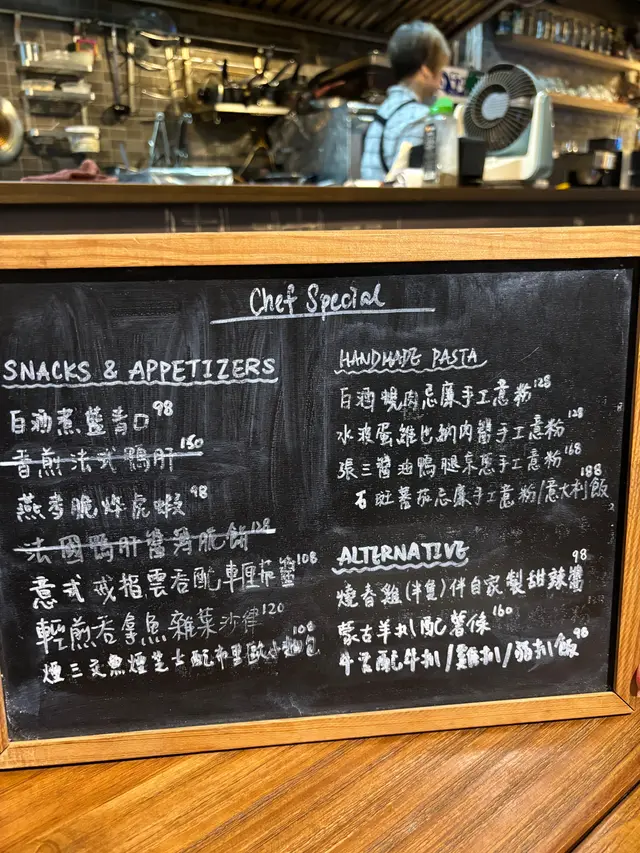 Chef Special
SNACKS & APPETIZERS
白酒煮藍青口 98
香煎法式鴨肝 150
燕麥脆炸虎蝦 98
法國鴨肝醬薄脆餅 128
意式戒指雲吞配車厘茄醬 108
輕煎吞拿魚雜菜沙律 120
煙三文魚煙芝士配布里歐小麵包 108
HANDMADE PASTA
白酒蜆肉忌廉手工意粉 128
水波蛋雜也納肉醬手工意粉 128
張三醬油鴨腿 手工意粉 168
石肚蕃茄忌廉手工意粉/意大利飯 188
ALTERNATIVE
燻春雞(半隻)伴自家製甜辣醬 98
蒙古羊扒配薯條 160
配牛扒/雞扒/豬扒飯 98